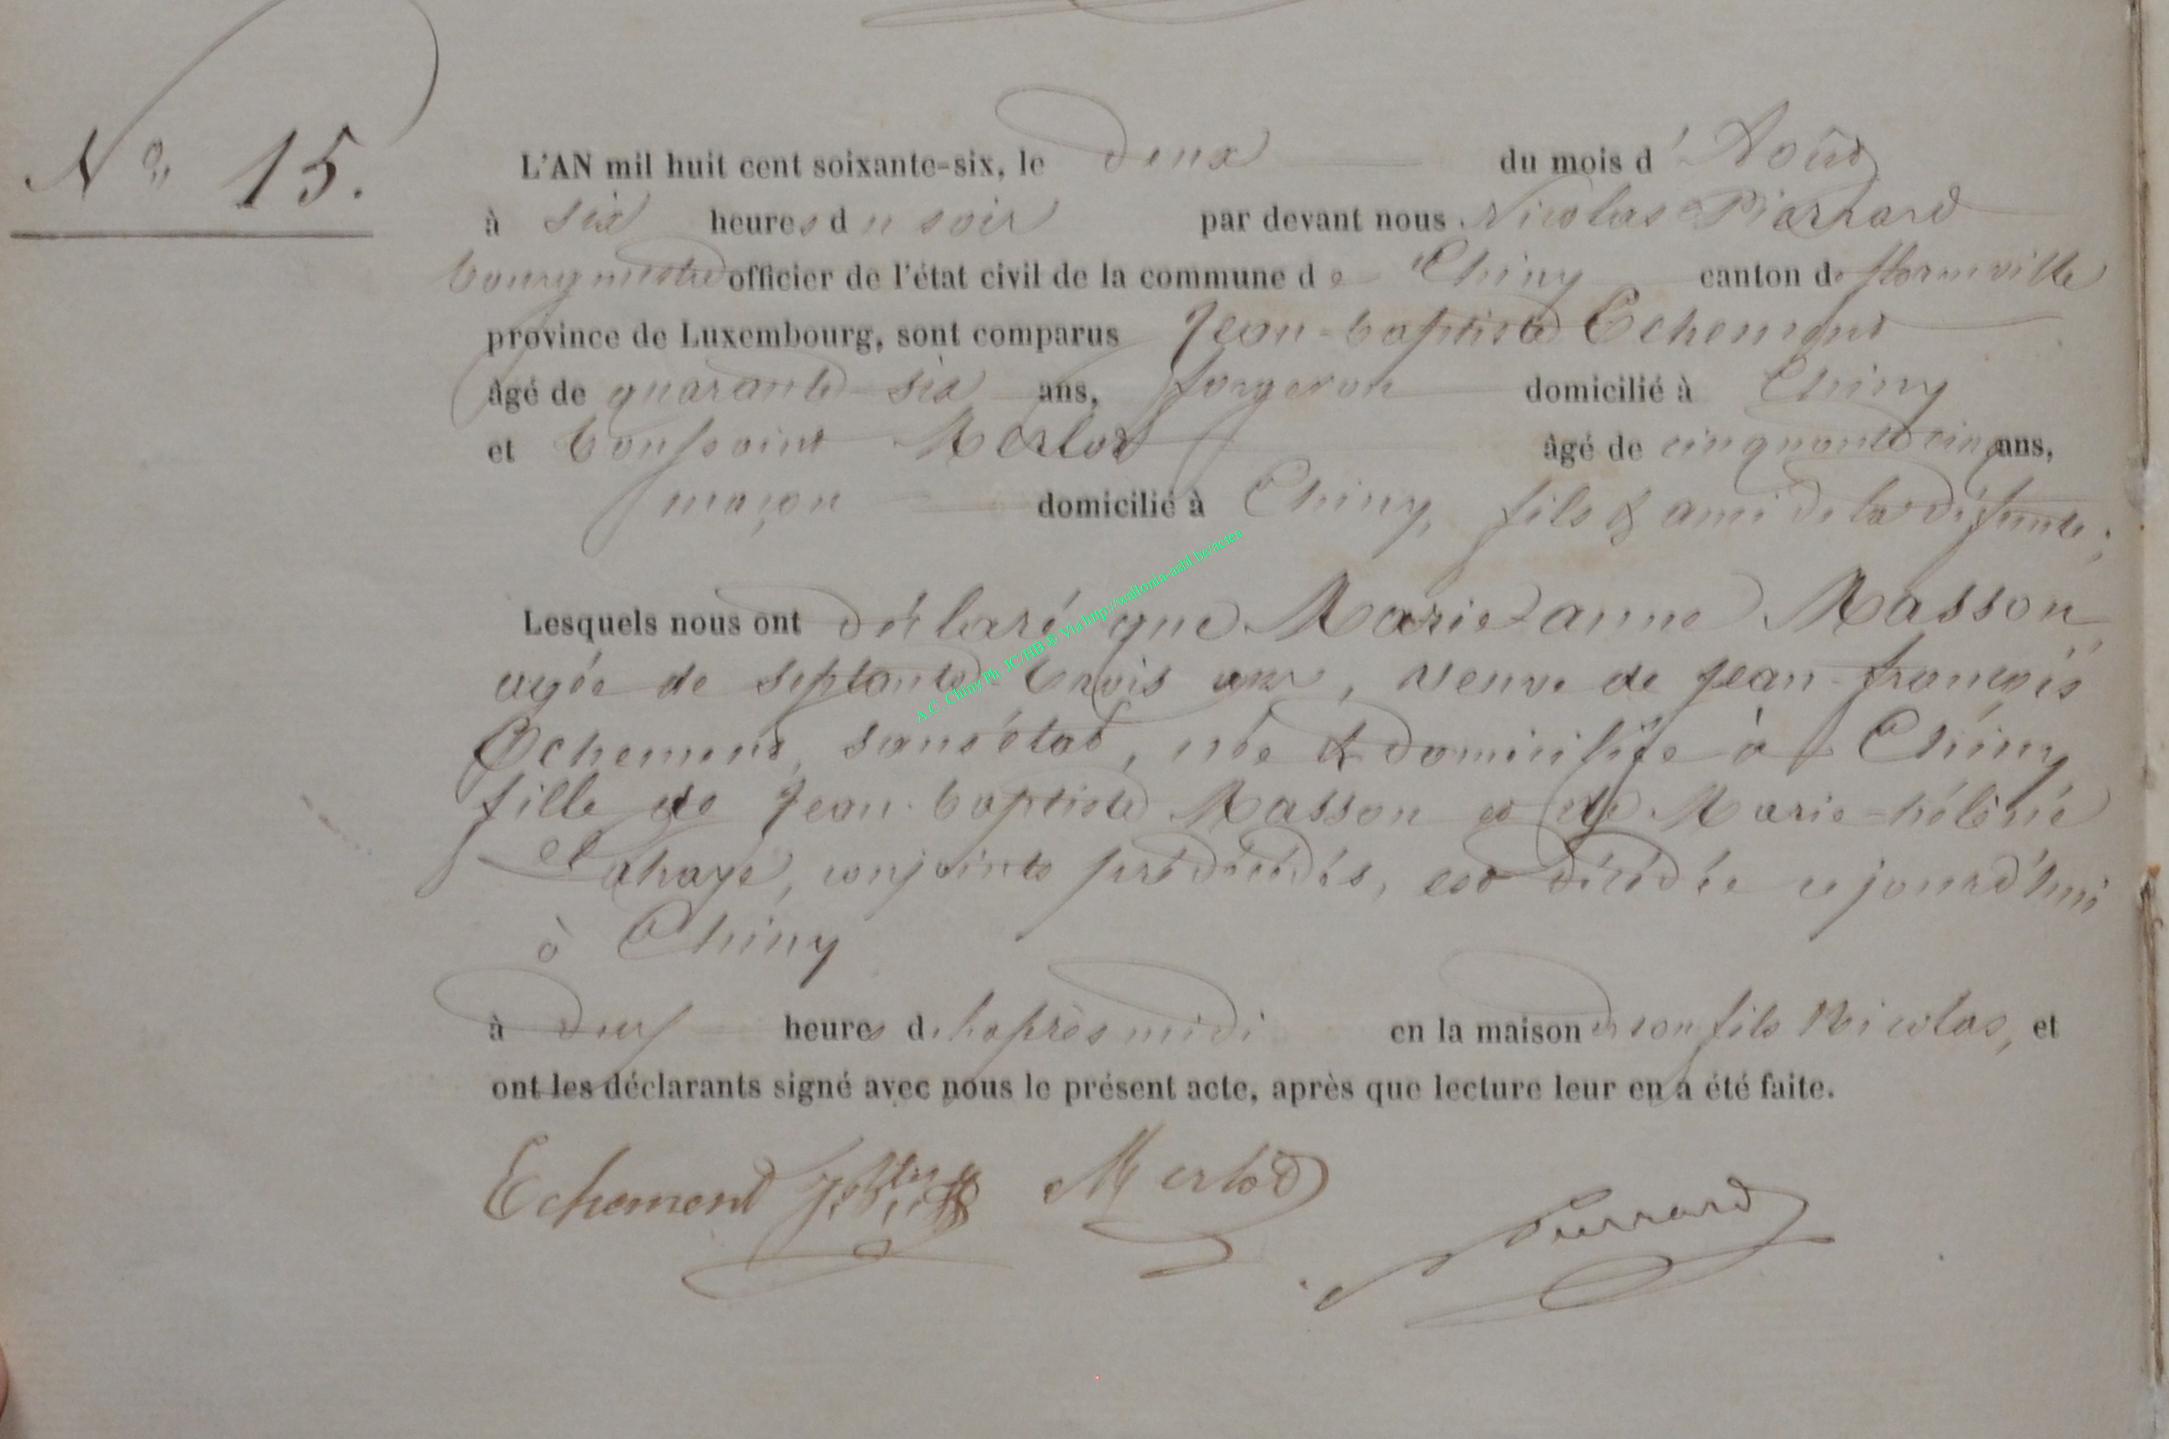 N° 15.
L'AN mil huit cent soixante-six, le deux du mois d'Août
à six heures du soir par devant nous Nicolas Pierrard
bourgmestre officier de l'état civil de la commune de Chiny canton de florenville
province de Luxembourg, sont comparus Jean-baptiste Echement
âgé de quarante-six ans, forgeron domicilié à Chiny
et toussaint Merlot âgé de cinquante cinq ans,
maçon domicilié à Chiny, fils & ami de la défunte;
Lesquels nous ont déclaré que Marie-anne Masson,
agée de septante-trois ans, veuve de Jean-françois
Echement, sans état, née & domiciliée à Chiny
fille de Jean-baptiste Masson et de Marie-hélène
Lahaye, conjoints prédécédés, est décédée cejourd'hui
à Chiny
à deux heures de l'après midi en la maison de son fils Nicolas, et
ont les déclarants signé avec nous le présent acte, après que lecture leur en a été faite.
Echement Merlot
Pierrard
A.C. Chiny Ph. JC/HB ® Via http://wallonia-asbl.be/actes